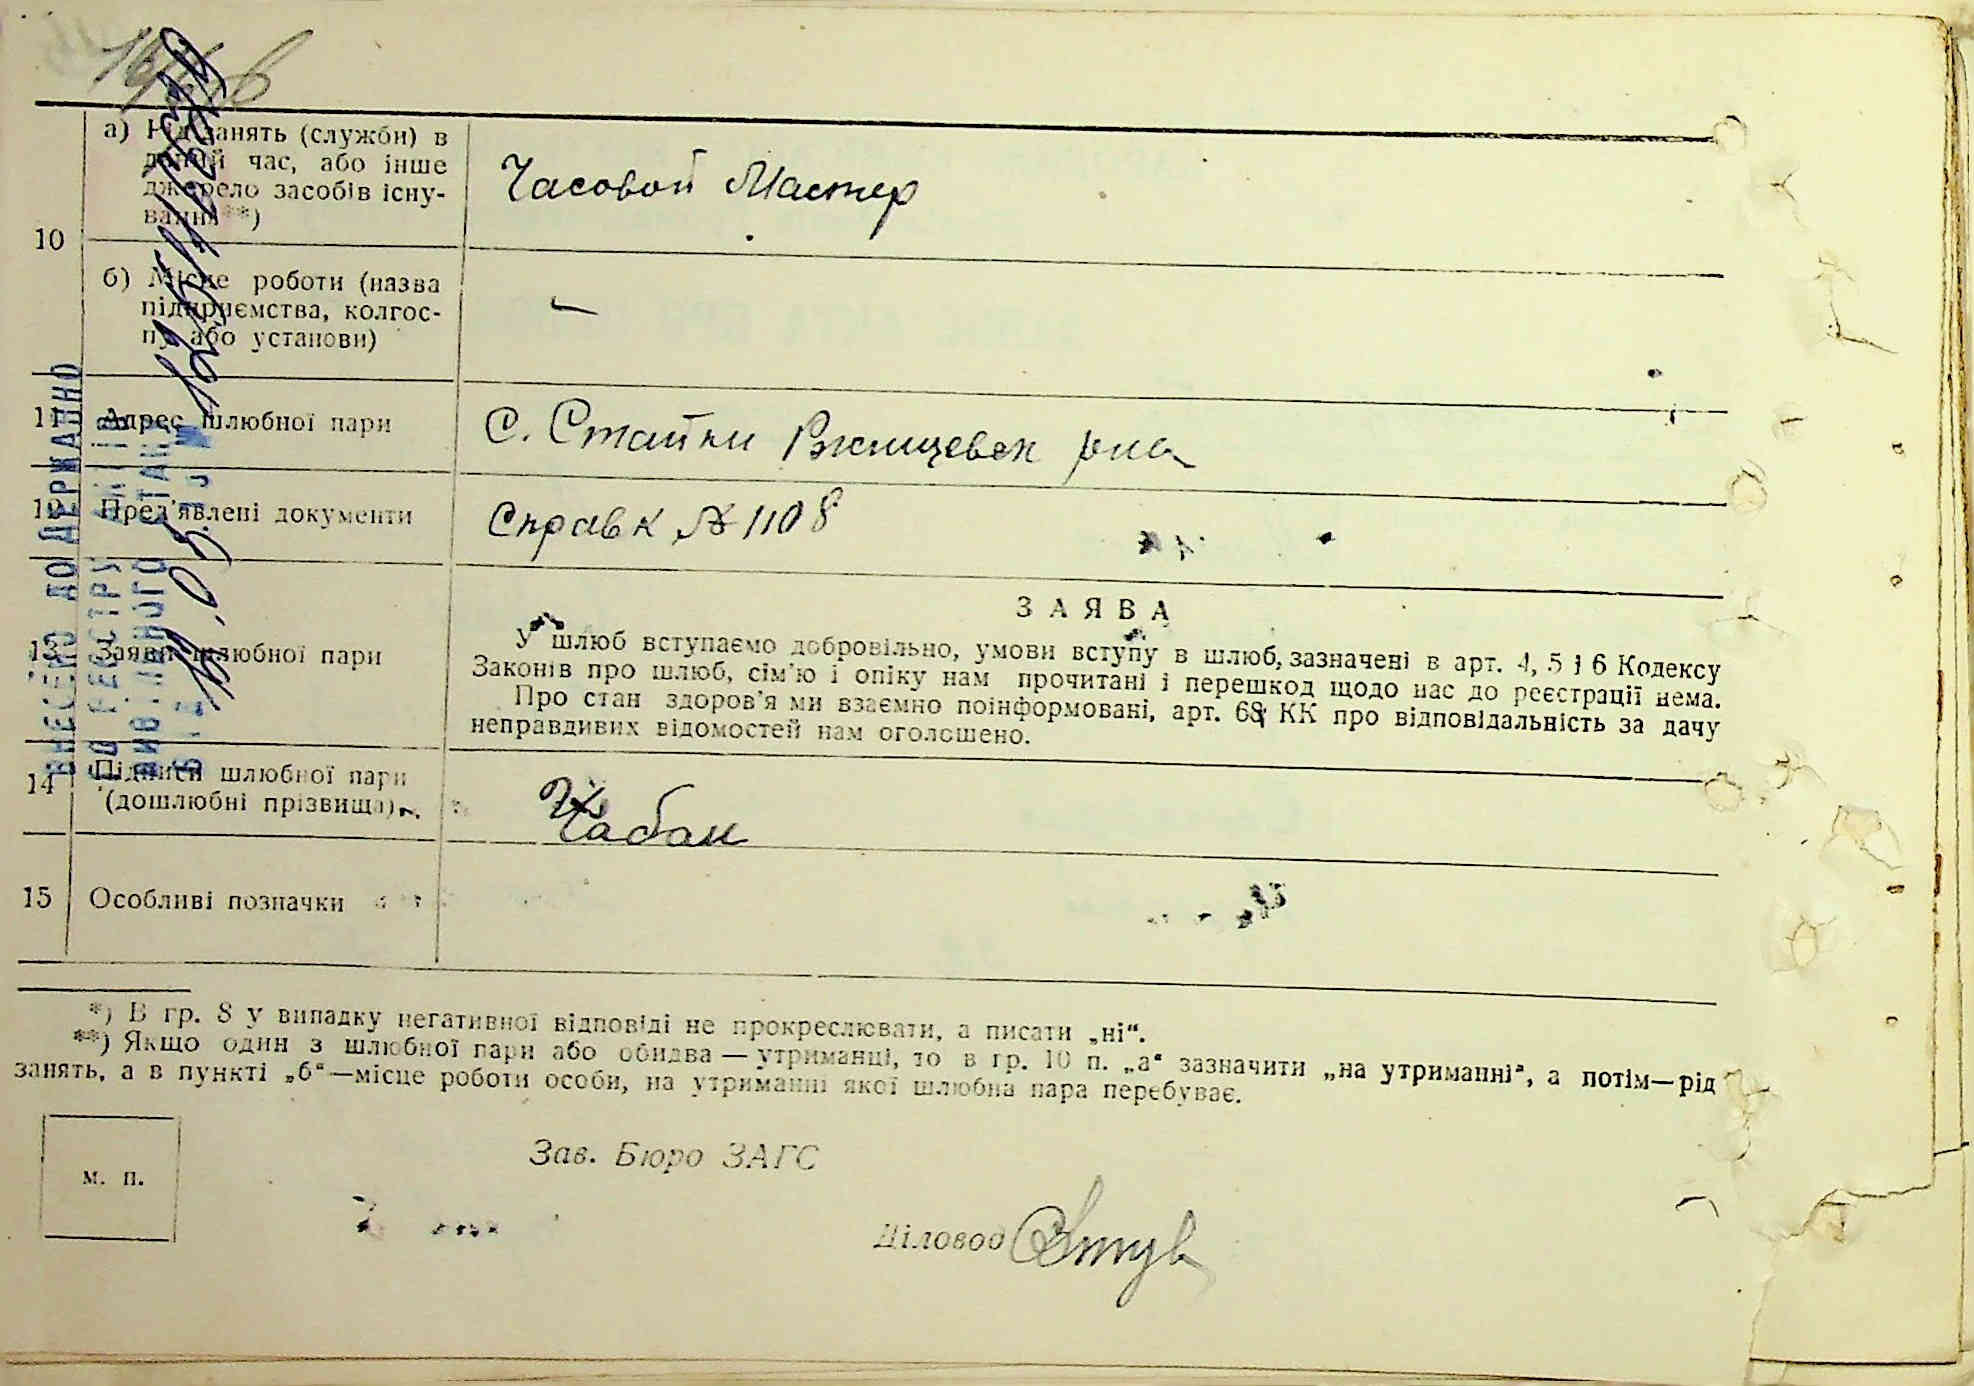 10
а) Рід занять (служби) в
даний час, або інше
джерело засобів існу-
вання**)
Часовой Мастер
б) Місце роботи (назва
підприємства, колгос-
пу або установи)
—
11 Адрес шлюбної пари
С. Стайки Ржищевск р-на
12 Пред'явлені документи
Справк № 1108
13 Заява шлюбної пари
ЗАЯВА
У шлюб вступаємо добровільно, умови вступу в шлюб, зазначені в арт. 4, 5 і 6 Кодексу
Законів про шлюб, сім'ю і опіку нам прочитані і перешкод щодо нас до реєстрації нема.
Про стан здоров'я ми взаємно поінформовані, арт. 68 КК про відповідальність за дачу
неправдивих відомостей нам оголошено.
14 Підписи шлюбної пари
(дошлюбні прізвища)
Чабан
15 Особливі позначки
*) В гр. 8 у випадку негативної відповіді не прокреслювати, а писати „ні“.
**) Якщо один з шлюбної пари або обидва — утриманці, то в гр. 10 п. „а“ зазначити „на утриманні“, а потім—рід
занять, а в пункті „б“—місце роботи особи, на утриманні якої шлюбна пара перебуває.
м. п.
Зав. Бюро ЗАГС
Діловод
ВНЕСЕНО ДО ДЕРЖАВНО
РЕЄСТРУ АКТІВ
ЦИВІЛЬНОГО СТАНУ